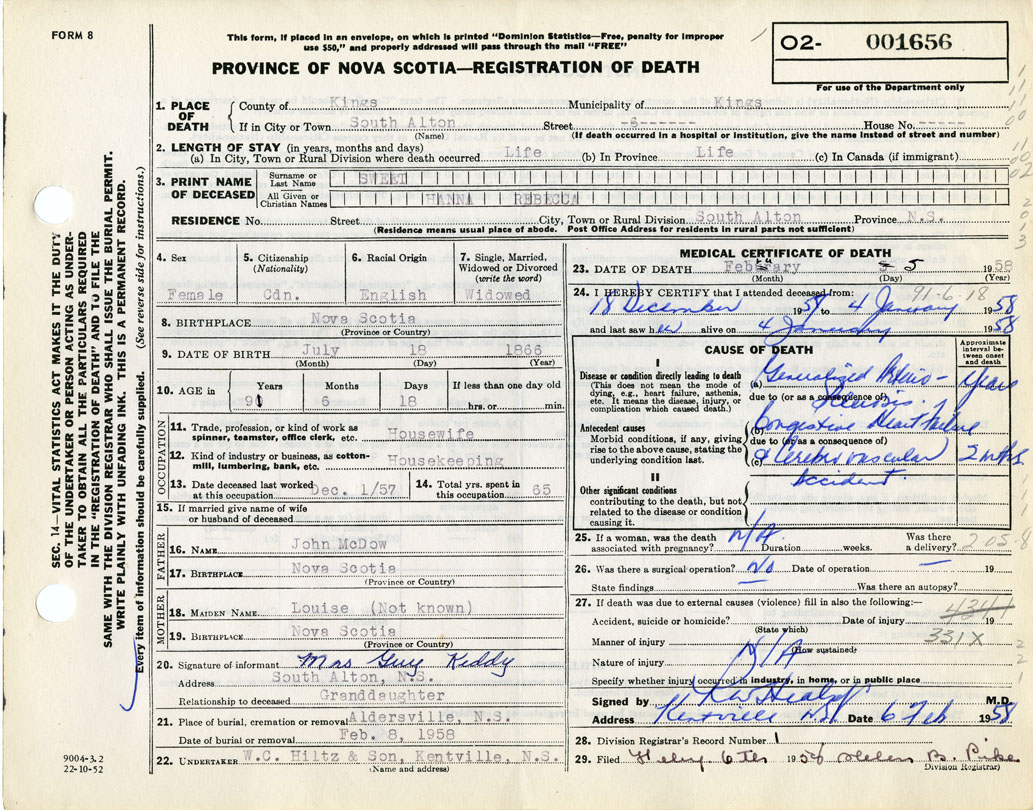 FORM 8
This form, if placed in an envelope, on which is printed "Dominion Statistics—Free, penalty for improper
use $50," and properly addressed will pass through the mail "FREE"
PROVINCE OF NOVA SCOTIA—REGISTRATION OF DEATH
O2- 001656
For use of the Department only
SEC. 14—VITAL STATISTICS ACT MAKES IT THE DUTY
OF THE UNDERTAKER OR PERSON ACTING AS UNDER-
TAKER TO OBTAIN ALL THE PARTICULARS REQUIRED
IN THE "REGISTRATION OF DEATH" AND TO FILE THE
SAME WITH THE DIVISION REGISTRAR WHO SHALL ISSUE THE BURIAL PERMIT.
WRITE PLAINLY WITH UNFADING INK. THIS IS A PERMANENT RECORD.
Every item of information should be carefully supplied. (See reverse side for instructions.)
1. PLACE OF DEATH
County of Kings Municipality of Kings
If in City or Town South Alton Street -6------ House No. -----
(Name) (If death occurred in a hospital or institution, give the name instead of street and number)
2. LENGTH OF STAY (in years, months and days)
(a) In City, Town or Rural Division where death occurred Life (b) In Province Life (c) In Canada (if immigrant)
3. PRINT NAME OF DECEASED
Surname or Last Name SWEET
All Given or Christian Names HANNA REBECCA
RESIDENCE No. Street City, Town or Rural Division South Alton Province N.S.
(Residence means usual place of abode. Post Office Address for residents in rural parts not sufficient)
4. Sex 5. Citizenship (Nationality) 6. Racial Origin 7. Single, Married, Widowed or Divorced (write the word)
Female Cdn. English Widowed
8. BIRTHPLACE Nova Scotia
(Province or Country)
9. DATE OF BIRTH July 18 1866
(Month) (Day) (Year)
10. AGE in Years Months Days If less than one day old
91 6 18 hrs. or min.
OCCUPATION
11. Trade, profession or kind of work as
spinner, teamster, office clerk, etc. Housewife
12. Kind of industry or business, as cotton-
mill, lumbering, bank, etc. Housekeeping
13. Date deceased last worked
at this occupation Dec. 1/57 14. Total yrs. spent in
this occupation 65
15. If married give name of wife
or husband of deceased
FATHER
16. NAME John McDow
17. BIRTHPLACE Nova Scotia
(Province or Country)
MOTHER
18. MAIDEN NAME Louise (Not known)
19. BIRTHPLACE Nova Scotia
(Province or Country)
20. Signature of informant Mrs Guy Keddy
Address South Alton, N.S.
Relationship to deceased Granddaughter
21. Place of burial, cremation or removal Aldersville, N.S.
Date of burial or removal Feb. 8, 1958
22. UNDERTAKER W.C. Hiltz & Son, Kentville, N.S.
(Name and address)
9004-3.2
22-10-52
MEDICAL CERTIFICATE OF DEATH
23. DATE OF DEATH February 5 1958
(Month) (Day) (Year)
91-6-18
24. I HEREBY CERTIFY that I attended deceased from:
18 December 1957 to 4 January 1958
and last saw her alive on 4 January 1958
CAUSE OF DEATH
Approximate interval between onset and death
I
Disease or condition directly leading to death
(This does not mean the mode of
dying, e.g., heart failure, asthenia,
etc. It means the disease, injury, or
complication which caused death.)
(a) Generalized Arterio- Years
due to (or as a consequence of)
Sclerosis
Antecedent causes
Morbid conditions, if any, giving
rise to the above cause, stating the
underlying condition last.
(b) Congestive Heart Failure
due to (or as a consequence of)
(c) & Cerebrovascular 2 mths
Accident.
II
Other significant conditions
contributing to the death, but not
related to the disease or condition
causing it.
25. If a woman, was the death
associated with pregnancy? N/A Duration weeks. Was there
a delivery?
205-8
26. Was there a surgical operation? No Date of operation — 19
State findings Was there an autopsy?
27. If death was due to external causes (violence) fill in also the following:—
Accident, suicide or homicide? Date of injury 19
(State which)
331X
Manner of injury
(How sustained)
N/A
Nature of injury
Specify whether injury occurred in industry, in home, or in public place
Signed by M.D.
Address Kentville N.S. Date 6 Feb 1958
28. Division Registrar's Record Number 1
29. Filed Feby 6th 1958 Helen B. Pike
Division Registrar)